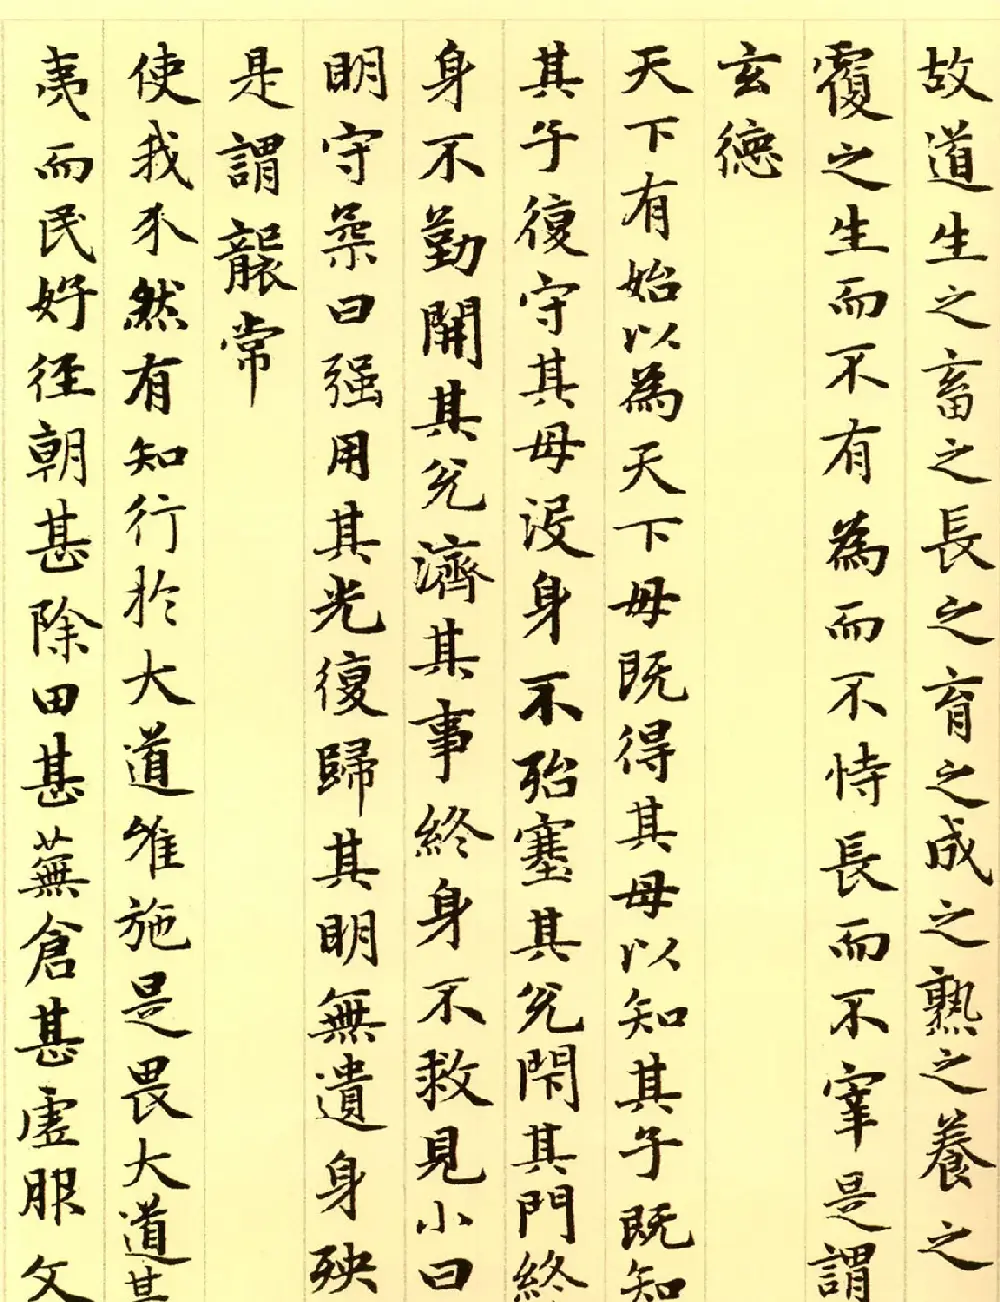 故道生之畜之長之育之成之熟之養之
覆之生而不有為而不恃長而不宰是謂
玄德
天下有始以為天下母既得其母以知其子既知
其子復守其母没身不殆塞其兌閇其門終
身不勤開其兌濟其事終身不救見小曰
明守柔曰强用其光復歸其明無遺身殃
是謂襲常
使我介然有知行於大道唯施是畏大道甚
夷而民好徑朝甚除田甚蕪倉甚虛服文